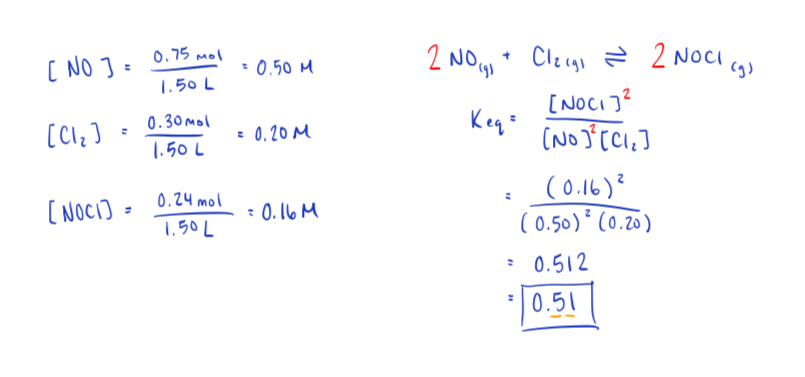 [NO] = 0.75 mol / 1.50 L = 0.50 M
[Cl₂] = 0.30 mol / 1.50 L = 0.20 M
[NOCl] = 0.24 mol / 1.50 L = 0.16 M
2 NO(g) + Cl₂(g) ⇌ 2 NOCl(g)
Keq = [NOCl]² / [NO]²[Cl₂]
= (0.16)² / (0.50)²(0.20)
= 0.512
= 0.51